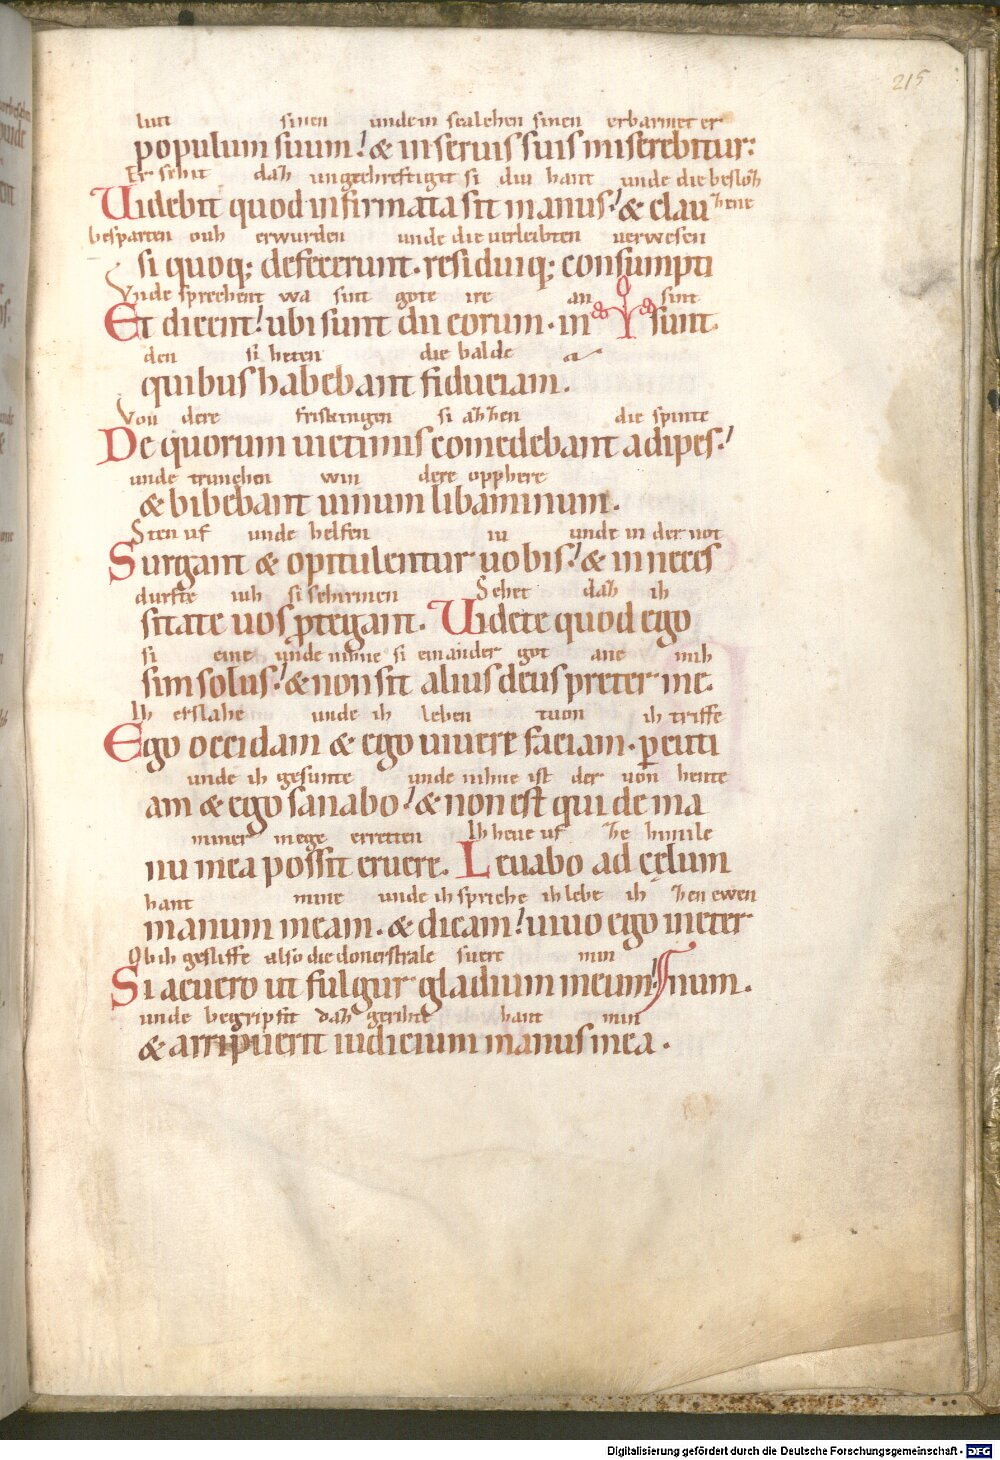 215
liut sinen unde in scalchen sinen erbarmet er
populum suum! & in seruis suis miserebitur:
Er sehit daz ungechreftigit si diu hant unde die besloz
Uidebit quod infirmata sit manus! & clau zene
besparten ouh erwurden unde die uerleibten uerwesen
si quoq; defecerunt. residuiq; consumpti
Vnde sprechent wa sint gote ire an sint
Et dicent! ubi sunt dii eorum. in sunt.
den si heten die balde
quibus habebant fiduciam.
Von dere friskingen si azzen die spinte
De quorum uictimis comedebant adipes!
unde trunchen win dere opphere
& bibebant uinum libaminum.
Sten uf unde helfen iu unde in der not
Surgant & opitulentur uobis! & in neces
durfte iuh si schirmen Sehet daz ih
sitate uos ptegant. Uidete quod ego
si eine unde nihne si ein ander got ane mih
sim solus! & non sit alius deus preter me.
Ih erslahe unde ih leben tuon ih triffe
Ego occidam & ego uiuere faciam. pcuti
unde ih gesunte unde nihne ist der uon hente
am & ego sanabo! & non est qui de ma
miner mege erretten Ih heue uf ze himile
nu mea possit eruere. Leuabo ad cęlum
hant mine unde ih spriche ih lebe ih zen ewen
manum meam. & dicam! uiuo ego ineter
Ob ih gesliffe also die donerstrale suert min
Si acuero ut fulgur gladium meum! num.
unde begripfit daz gerihte hant min
& arripuerit iudicium manus mea.
Digitalisierung gefördert durch die Deutsche Forschungsgemeinschaft - DFG